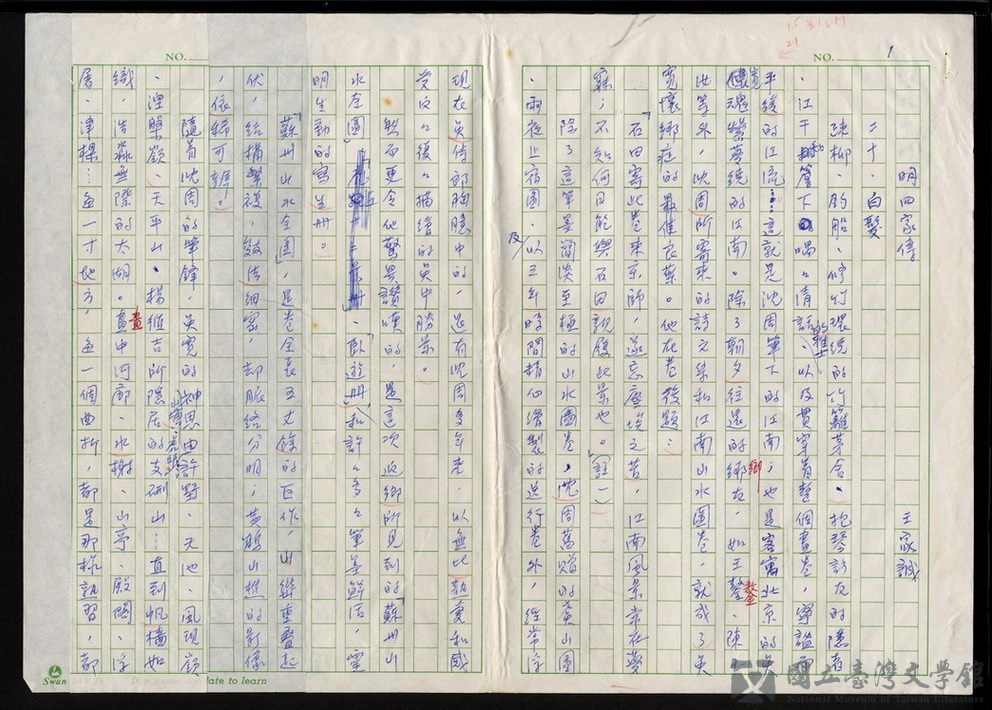 NO.
1
明四家傳
王家誠
二十、白髮
疎柳、釣船、修竹環繞的竹籬茅舍、抱琴訪友的隱者
、江干和篷下喁喁清話的雅士、以及貫穿着整個畫卷，寧謐
平緩的江流……這就是沈周筆下的江南；也是客寓北京的吳
寬魂縈夢繞的江南。除了朝夕往還的鄉友，如王鏊、陳
等外，沈周所寄來的詩文泉和江南山水圖卷，就成了吳
寬懷鄉症的最佳良藥。他在卷後題：
「石田寄此卷來京師，遂忘塵埃之苦，江南風景常在夢
寐；不知何日能與石田親履此景也。」（註一）
除了這筆墨簡淡至極的山水圖卷，沈周舊贈的黃山圖
、雨夜止宿圖，以及三年時間精心繪製的送行卷外，經常浮
現在吳侍郎胸臆中的，是有沈周多年來，以無比熱愛和感
受反反復復描繪的吳中勝景。
然而更令他驚異讚嘆的，是這次返鄉所見到的「蘇州山
水全圖」、「臥遊冊」和許許多多筆墨鮮活，靈
明生動的寫生冊。
「蘇州山水全圖」，是卷全長五丈餘的巨作，山巒重疊起
伏，結構繁複，皴法細密，却脈絡分明；黃鶴山樵的影像
，依稀可辨。
隨着沈周的筆鋒，吳寬的神思由許墅、天池、鳳現嶺
、涅槃嶺、天平山、楊維吉所隱居的支硎山……直到帆檣如
織，浩淼無際的太湖。畫中河廊、水榭、山亭、殿閣、浮
屠、津樑…每一寸地方，每一個曲折，都是那樣熟習，都
NO.
Swan
ate to learn
國立臺灣文學館
National Museum of Taiwan Literature